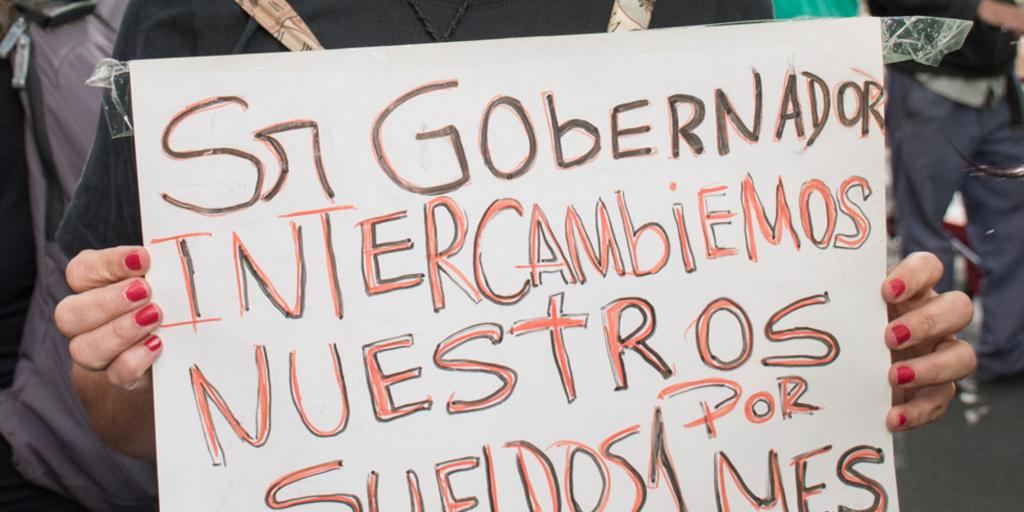 Sr GObERNADOR
INTERCAMbiEMOS
NUESTROS
SUELDOS POR
1 MES